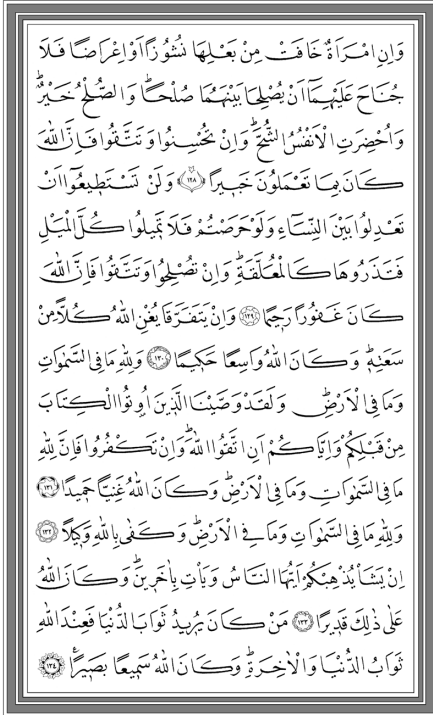 وَاِنِ امْرَاَةٌ خَافَتْ مِنْ بَعْلِهَا نُشُوزًا اَوْ اِعْرَاضًا فَلَا
جُنَاحَ عَلَيْهِمَٓا اَنْ يُصْلِحَا بَيْنَهُمَا صُلْحًاۜ وَالصُّلْحُ خَيْرٌۜ
وَاُحْضِرَتِ الْاَنْفُسُ الشُّحَّۜ وَاِنْ تُحْسِنُوا وَتَتَّقُوا فَاِنَّ اللّٰهَ
كَانَ بِمَا تَعْمَلُونَ خَبِيرًا ﴿١٢٨﴾ وَلَنْ تَسْتَطِيعُٓوا اَنْ
تَعْدِلُوا بَيْنَ النِّسَٓاءِ وَلَوْ حَرَصْتُمْ فَلَا تَمِيلُوا كُلَّ الْمَيْلِ
فَتَذَرُوهَا كَالْمُعَلَّقَةِۜ وَاِنْ تُصْلِحُوا وَتَتَّقُوا فَاِنَّ اللّٰهَ
كَانَ غَفُورًا رَحِيمًا ﴿١٢٩﴾ وَاِنْ يَتَفَرَّقَا يُغْنِ اللّٰهُ كُلًّا مِنْ
سَعَتِهٖۜ وَكَانَ اللّٰهُ وَاسِعًا حَكِيمًا ﴿١٣٠﴾ وَلِلّٰهِ مَا فِي السَّمٰوَاتِ
وَمَا فِي الْاَرْضِۜ وَلَقَدْ وَصَّيْنَا الَّذِينَ اُوتُوا الْكِتَابَ
مِنْ قَبْلِكُمْ وَاِيَّاكُمْ اَنِ اتَّقُوا اللّٰهَۜ وَاِنْ تَكْفُرُوا فَاِنَّ لِلّٰهِ
مَا فِي السَّمٰوَاتِ وَمَا فِي الْاَرْضِۜ وَكَانَ اللّٰهُ غَنِيًّا حَمِيدًا ﴿١٣١﴾
وَلِلّٰهِ مَا فِي السَّمٰوَاتِ وَمَا فِي الْاَرْضِۜ وَكَفٰى بِاللّٰهِ وَكِيلًا ﴿١٣٢﴾
اِنْ يَشَأْ يُذْهِبْكُمْ اَيُّهَا النَّاسُ وَيَأْتِ بِاٰخَرِينَۜ وَكَانَ اللّٰهُ
عَلٰى ذٰلِكَ قَدِيرًا ﴿١٣٣﴾ مَنْ كَانَ يُرِيدُ ثَوَابَ الدُّنْيَا فَعِنْدَ اللّٰهِ
ثَوَابُ الدُّنْيَا وَالْاٰخِرَةِۜ وَكَانَ اللّٰهُ سَمِيعًا بَصِيرًا۟ ﴿١٣٤﴾